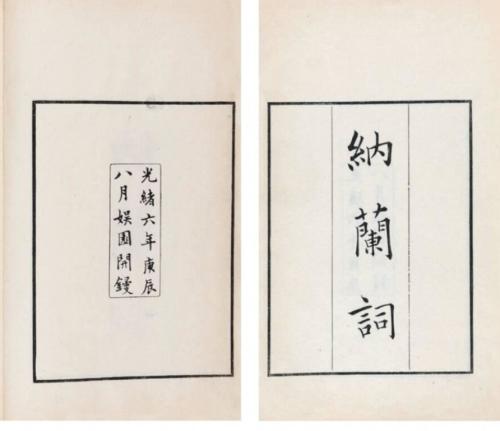 納蘭詞
光緒六年庚辰
八月娱園開鋟